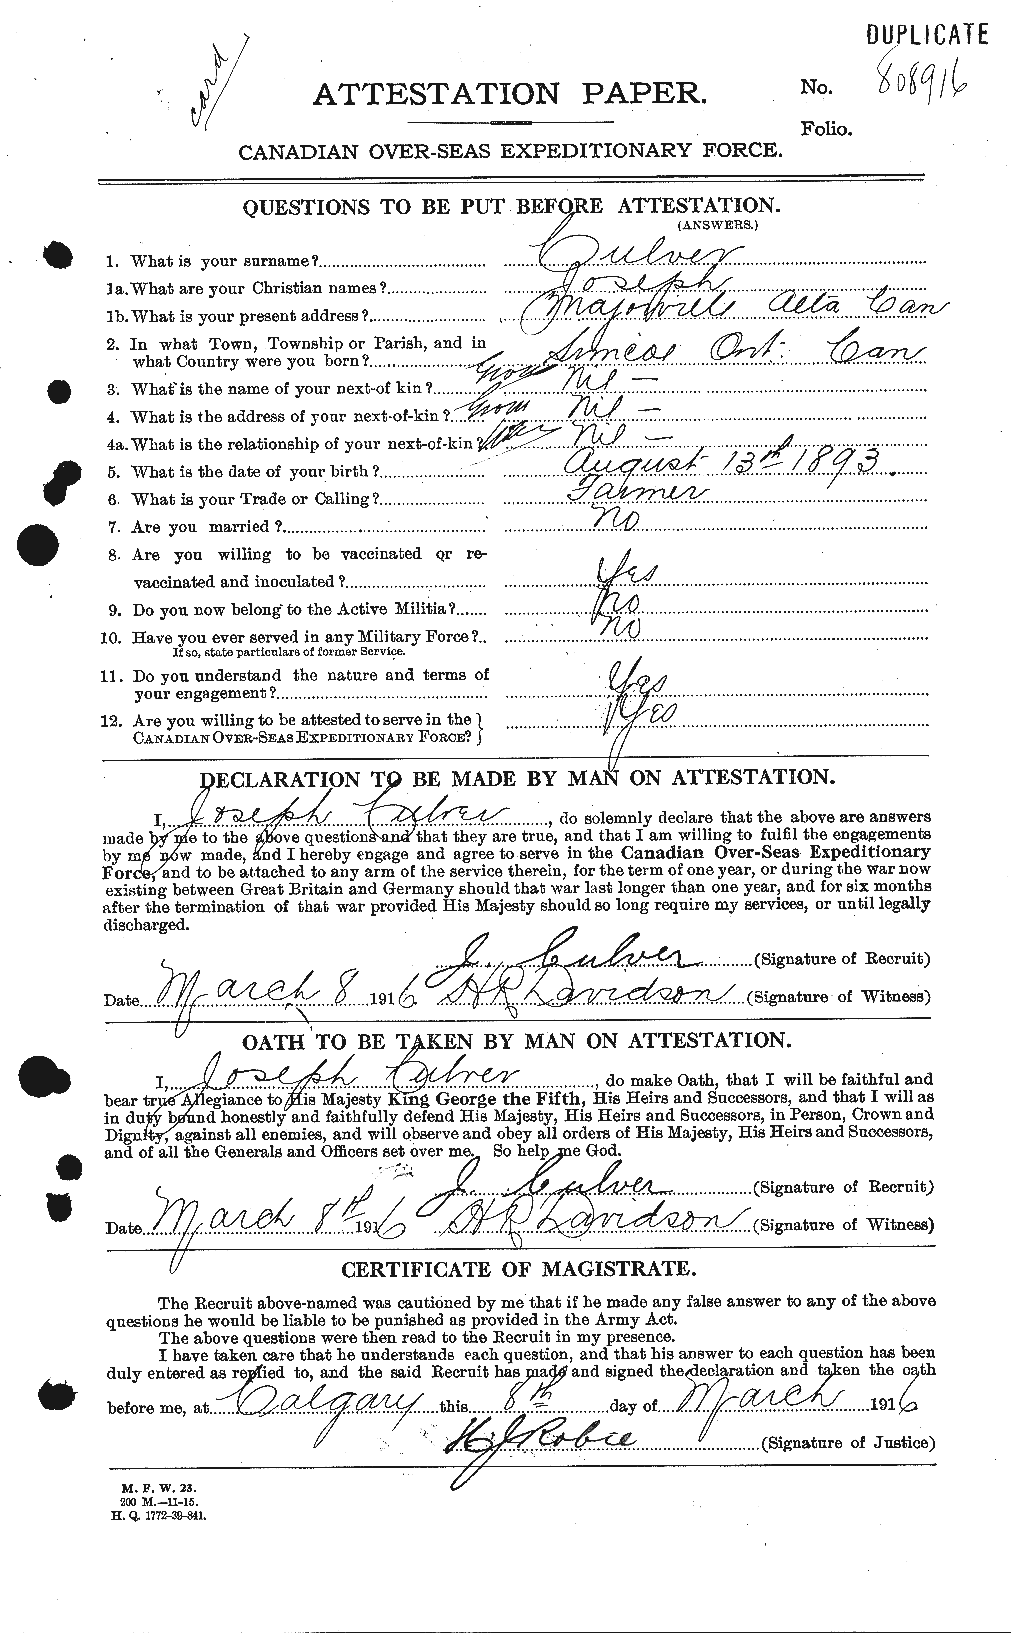 DUPLICATE
card
ATTESTATION PAPER.
No. 808916
Folio.
CANADIAN OVER-SEAS EXPEDITIONARY FORCE.
QUESTIONS TO BE PUT BEFORE ATTESTATION.
(ANSWERS.)
1. What is your surname? Culver
1a. What are your Christian names? Joseph
1b. What is your present address? Majorville Alta Can
2. In what Town, Township or Parish, and in
what Country were you born? Simcoe Ont. Can
3. What is the name of your next-of kin? Nil —
4. What is the address of your next-of-kin? Nil —
4a. What is the relationship of your next-of-kin? Nil —
5. What is the date of your birth? August 13th 1893.
6. What is your Trade or Calling? Farmer
7. Are you married? No
8. Are you willing to be vaccinated or re-
vaccinated and inoculated? Yes
9. Do you now belong to the Active Militia? No
10. Have you ever served in any Military Force? No
If so, state particulars of former Service.
11. Do you understand the nature and terms of
your engagement? Yes
12. Are you willing to be attested to serve in the
CANADIAN OVER-SEAS EXPEDITIONARY FORCE? Yes
DECLARATION TO BE MADE BY MAN ON ATTESTATION.
I, Joseph Culver, do solemnly declare that the above are answers
made by me to the above questions and that they are true, and that I am willing to fulfil the engagements
by me now made, and I hereby engage and agree to serve in the Canadian Over-Seas Expeditionary
Force, and to be attached to any arm of the service therein, for the term of one year, or during the war now
existing between Great Britain and Germany should that war last longer than one year, and for six months
after the termination of that war provided His Majesty should so long require my services, or until legally
discharged.
J. Culver (Signature of Recruit)
Date March 8 1916 H R Davidson (Signature of Witness)
OATH TO BE TAKEN BY MAN ON ATTESTATION.
I, Joseph Culver, do make Oath, that I will be faithful and
bear true Allegiance to His Majesty King George the Fifth, His Heirs and Successors, and that I will as
in duty bound honestly and faithfully defend His Majesty, His Heirs and Successors, in Person, Crown and
Dignity, against all enemies, and will observe and obey all orders of His Majesty, His Heirs and Successors,
and of all the Generals and Officers set over me. So help me God.
J. Culver (Signature of Recruit)
Date March 8th 1916 H R Davidson (Signature of Witness)
CERTIFICATE OF MAGISTRATE.
The Recruit above-named was cautioned by me that if he made any false answer to any of the above
questions he would be liable to be punished as provided in the Army Act.
The above questions were then read to the Recruit in my presence.
I have taken care that he understands each question, and that his answer to each question has been
duly entered as replied to, and the said Recruit has made and signed the declaration and taken the oath
before me, at Calgary this 8th day of March 1916
H J Robie (Signature of Justice)
M. F. W. 23.
200 M.—11-15.
H. Q. 1772-39-841.